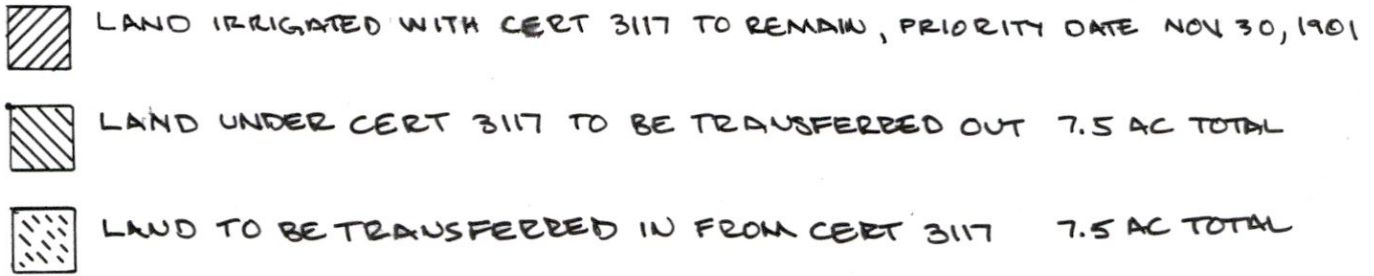 LAND IRRIGATED WITH CERT 3117 TO REMAIN, PRIORITY DATE NOV 30, 1901
LAND UNDER CERT 3117 TO BE TRANSFERRED OUT 7.5 AC TOTAL
LAND TO BE TRANSFERRED IN FROM CERT 3117 7.5 AC TOTAL